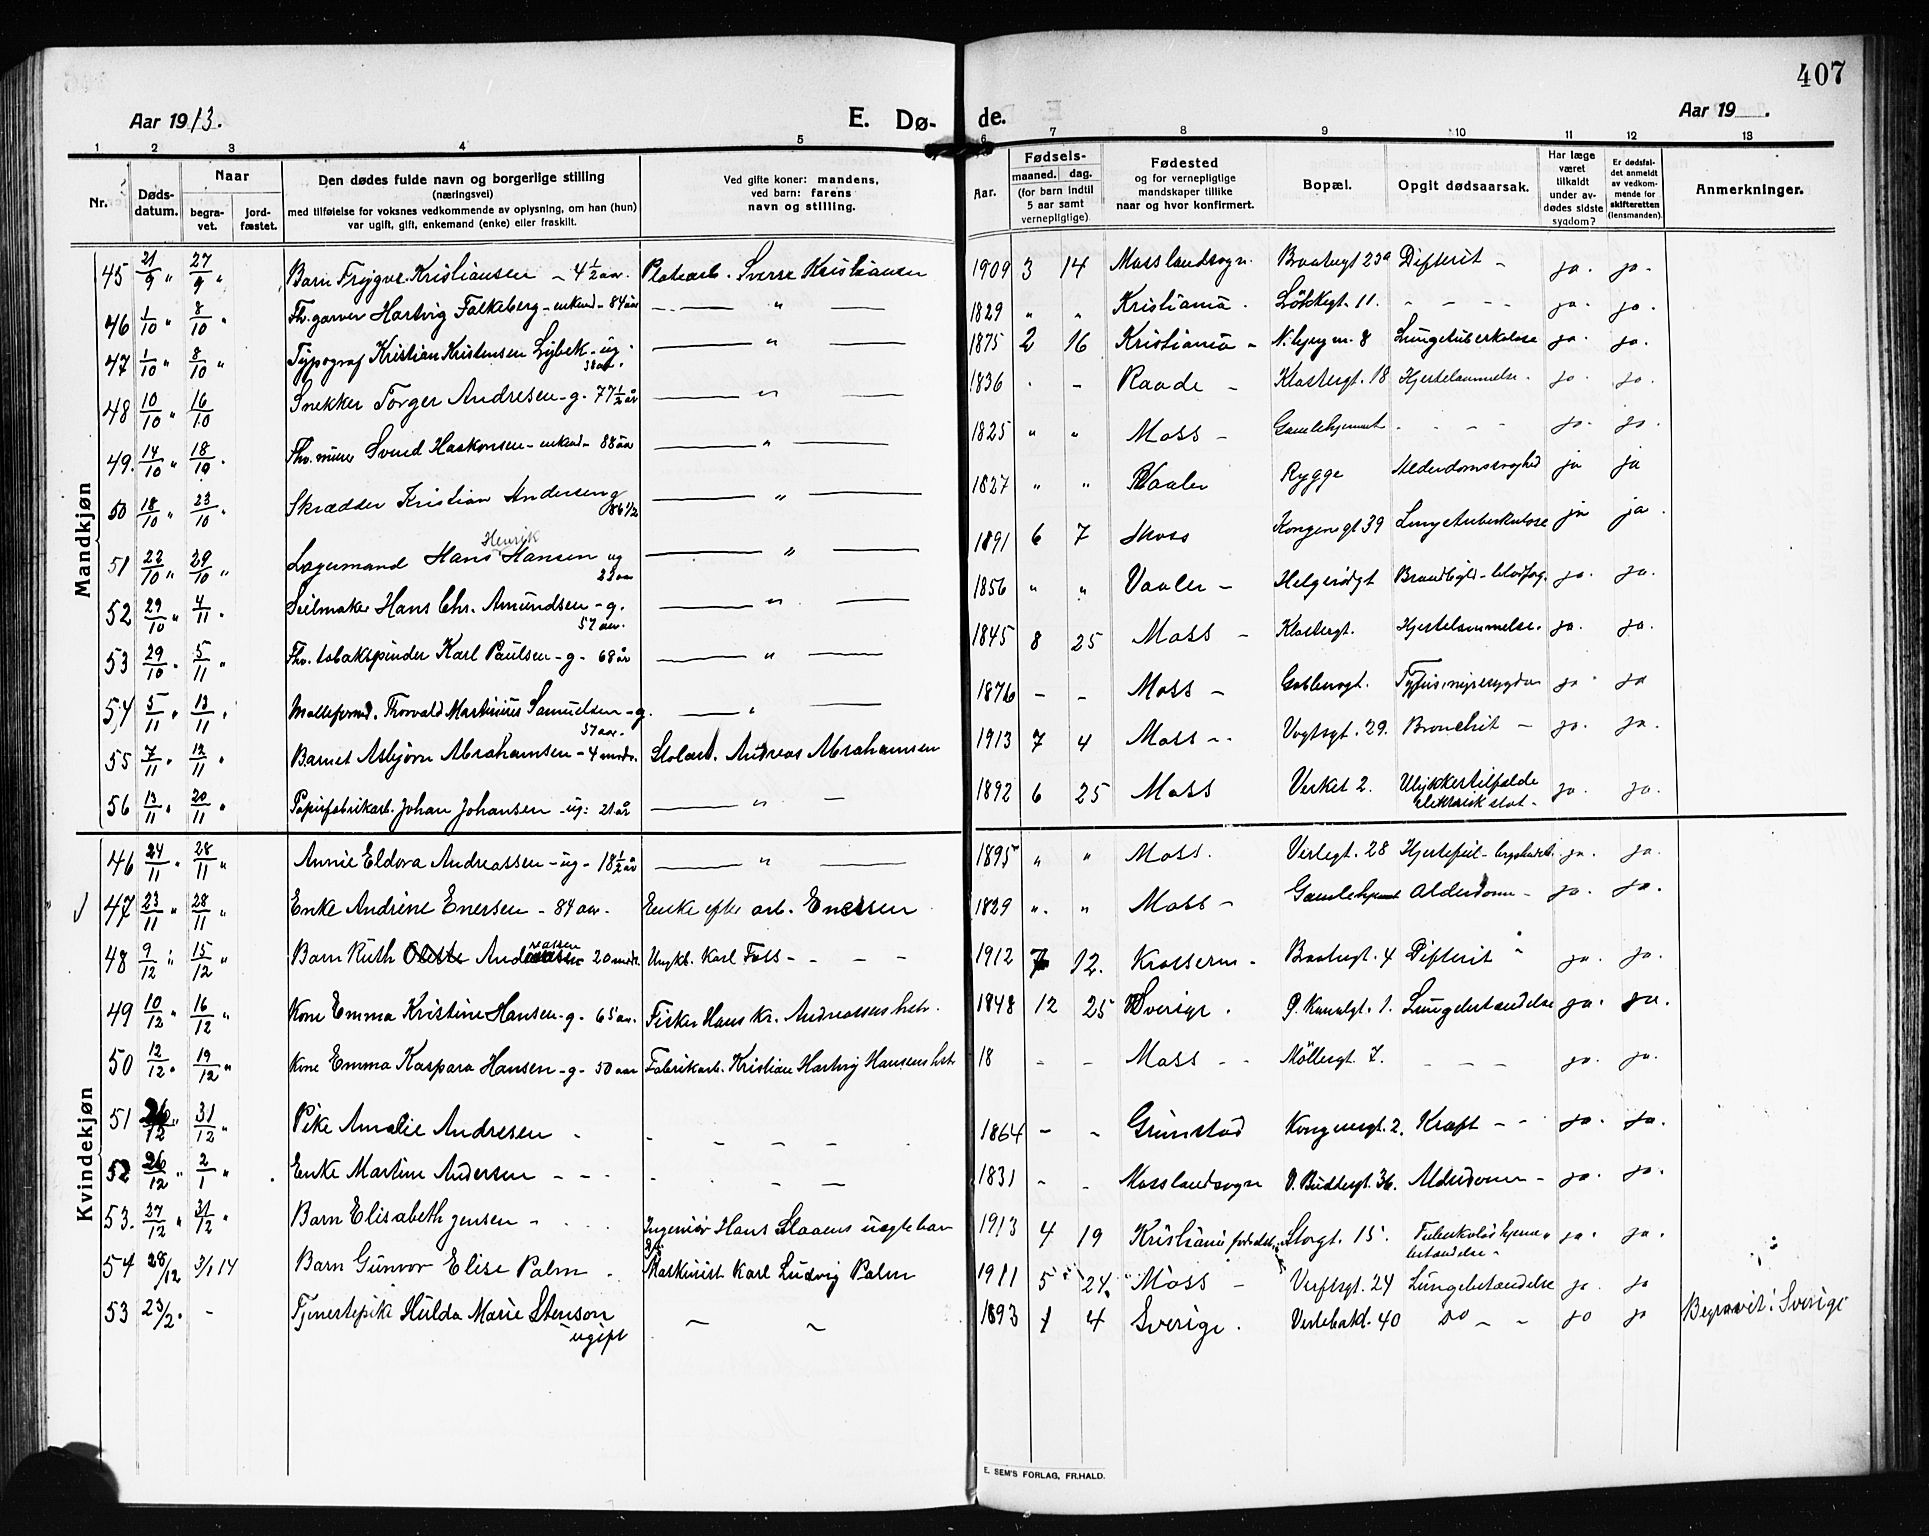 407
Aar 1913.
E. Dø-
de.
Aar 19 .
1 2 3 4 5 6 7 8 9 10 11 12 13
Nr.
Døds-
datum.
Naar
begra-
vet.
jord-
fæstet.
Den dødes fulde navn og borgerlige stilling
(næringsvei)
med tilføielse for voksnes vedkommende av oplysning, om han (hun)
var ugift, gift, enkemand (enke) eller fraskilt.
Ved gifte koner: mandens,
ved barn: farens
navn og stilling.
Aar.
Fødsels-
maaned. dag.
(for barn indtil
5 aar samt
vernepligtige).
Fødested
og for vernepligtige
mandskaper tillike
naar og hvor konfirmert.
Bopæl.
Opgit dødsaarsak.
Har læge
været
tilkaldt
under av-
dødes sidste
sygdom?
Er dødsfal-
det anmeldt
av vedkom-
mende for
skifteretten
(lensmanden).
Anmerkninger.
Mandkjøn
45 21/9 " 27/9 " Barn Trygve Kristiansen - 4 1/2 aar. Platearb. Sverre Kristiansen 1909 3 14 Mosslandsogn. Baatsgt 23a Difterit - ja. ja.
46 1/10 " 8/10 " Fhv. garver Hartvig Falkeberg - enkem - 84 aar " 1829 " " Kristiania. Løkkegt. 11. - - - - ja. ja.
47 1/10 " 8/10 " Typograf Kristian Kristensen Lybek - ug. 38 aar. " 1875 2 16 Kristiania - N. bjergm. 8 Lungetuberkolose ja. ja.
48 10/10 " 16/10 Snekker Torger Andresen - g. 77 1/2 år " 1836 - - Raade - Klostergt. 18 Hjertelammelse. ja. ja.
49. 14/10 " 18/10. Fhv. murer Svend Haakonsen - enkem - 88 aar " 1825 " " Moss - Gamlehjemmet - - - - ja. ja.
50 18/10 " 23/10. Skrædder Kristian Andersen g 86 1/2 " 1827 " " Vaaler Rygge Alderdomssvaghed ja ja
51 22/10 " 29/10 " Lagermand Hans Henrik Hansen ug 22 aar " 1891 6 7 Moss Kongensgt 39 Lungetuberkulose ja ja.
52 29/10 " 4/11. Seilmaker Hans Chr. Amundsen - g. 57 aar. " 1856 " " Vaaler - Helgerødgt ja. ja.
53 29/10 . 5/11 " Fhv. tobakspinder Karl Paulsen - g - 68 år " 1845 8 25 Moss - Klostergt. Hjertelammelse. ja. ja.
54 5/11 " 13/11. Thorvald Martinius Samuelsen - g. 57 aar. " 1876 - - Moss - ja. ja
55 7/11 " 12/11. Barnet Asbjørn Abrahamsen - 4 mndr. Andreas Abrahamsen 1913 7 4 Moss - - Vogtsgt. 29. Bronchit - ja. ja.
56 13/11 " 20/11 " Papirfabrikarb. Johan Johansen - ug: 21 år " 1892 6 25 Moss Verket 2. Ulykkestilfælde elektrisk støt - ja. ja.
Kvindekjøn
46 24/11 " 28/11 " Annie Eldora Andreassen - ug - 18 1/2 år " 1895 " " Moss. Verlegt. 28 Hjertefeil - ja. ja.
47 23/11 " 28/11 " Enke Andrine Enersen - 84 aar. Enke efter arb. Enersen 1829 ". " Moss - Gamlehjemmet Alderdom - ja. ja.
48 9/12 " 15/12 " Barn Ruth Andreassen 20 mdr. Ungk. Karl Foss - - - - 1912 7 12. Krosser - Baatsgt. 4 Difterit " ja. ja.
49 10/12 " 16/12 " Kone Emma Kristine Hansen - g - 65 aar. Fisker Hans Kr. Andreassens hstr. 1848 12 25 Sverige. P. Kanalgt. 1. Lungebetændelse ja. ja.
50 12/12 " 19/12 " Kone Emma Kaspara Hansen - g - 50 aar Fabrikarb. Kristian Hartvig Hansens hstr 18 - - Moss - - Møllergt. 7. - - - ja. ja.
51 26/12 " 31/12 " Pike Amalie Andresen - - - - - 1864 - - Grimstad Kongensgt. 2. Kræft - - ja. ja.
52 26/12 " 2/1 " Enke Martine Andersen - - - - - - 1831 - - Mosslandsogn V. Buddesgt. 36. Alderdom - ja. ja.
53. 27/12 " 31/12 " Barn Elisabeth Jensen - Ingeniør Hans Slaaens uegte barn 1913 4 19 Kristiania Storgt. 15. Tuberkuløs hjernebetændelse - ja. ja.
54 28/12 3/1 14 Barn Gunvor Elise Palm - Maskinist Karl Ludvig Palm 1911 5 24. Moss - Verftsgt. 24 Lungebetændelse ja. ja
53 23/2. - Tjenestepike Hulda Marie Stenson ugift - - 1893 1 4 Sverige. 40 Do - - ja ja Begravet i Sverige
E. SEM'S FORLAG, FR.HALD.